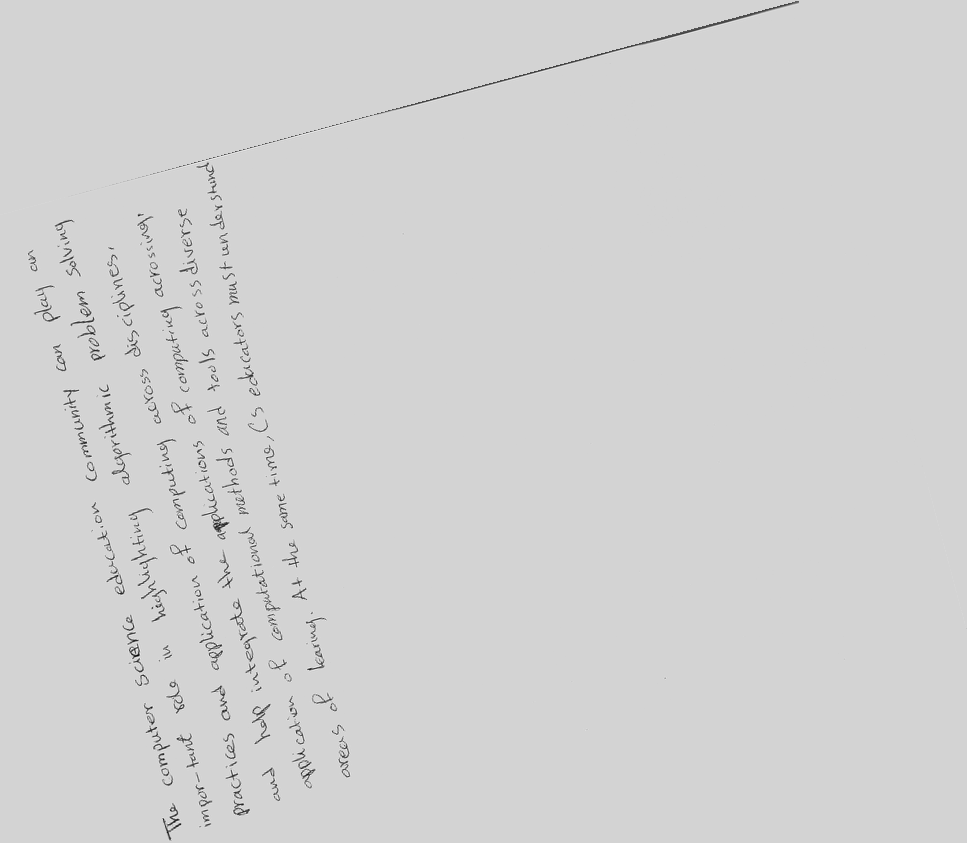 The computer science education community can play an
impor-tant role in highlighting algorithmic problem solving
practices and application of computing across disciplines,
and help integrate the applications of computing acrossing,
application of computational methods and tools across diverse
areas of learing. At the same time, CS educators must understand